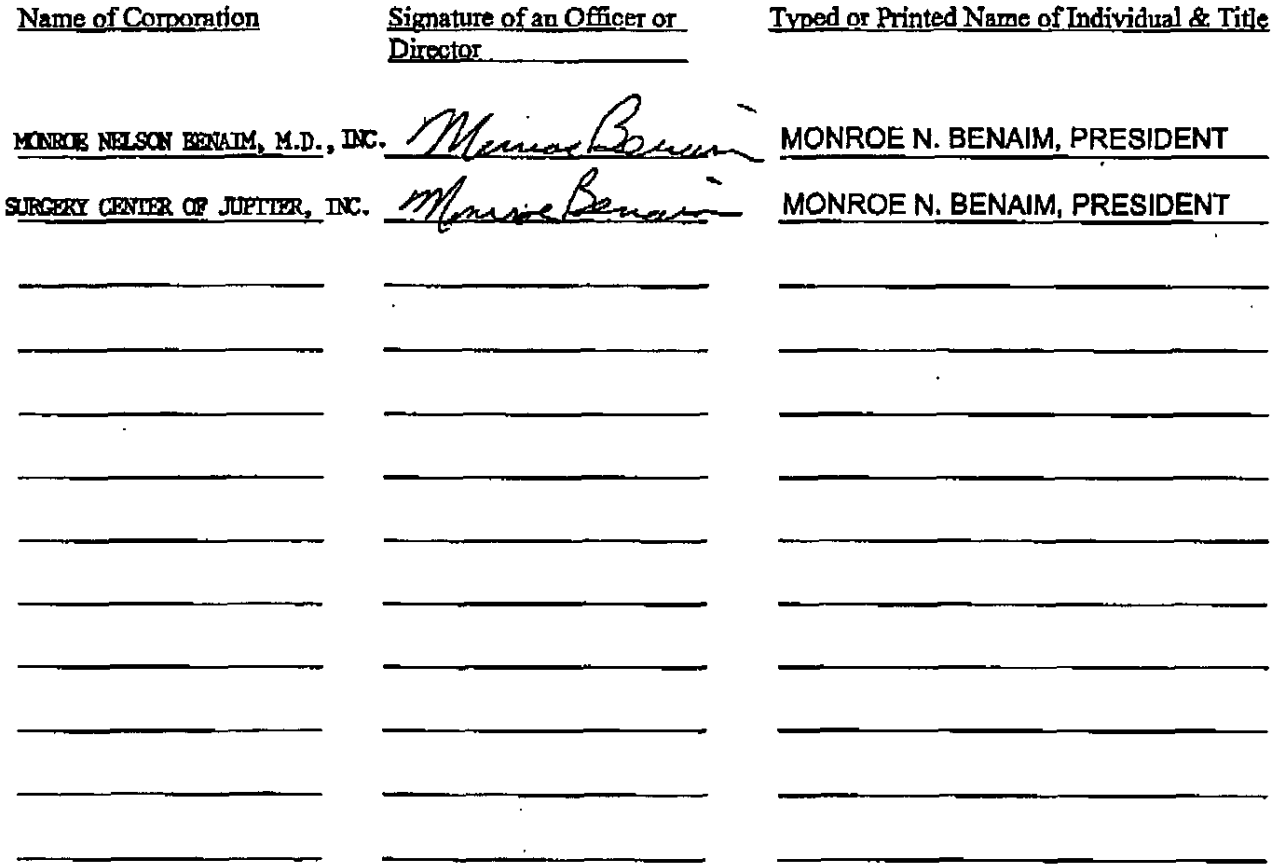 Name of Corporation Signature of an Officer or Director Typed or Printed Name of Individual & Title
MONROE NELSON BENAIM, M.D., INC. Monroe Benaim MONROE N. BENAIM, PRESIDENT
SURGERY CENTER OF JUPITER, INC. Monroe Benaim MONROE N. BENAIM, PRESIDENT